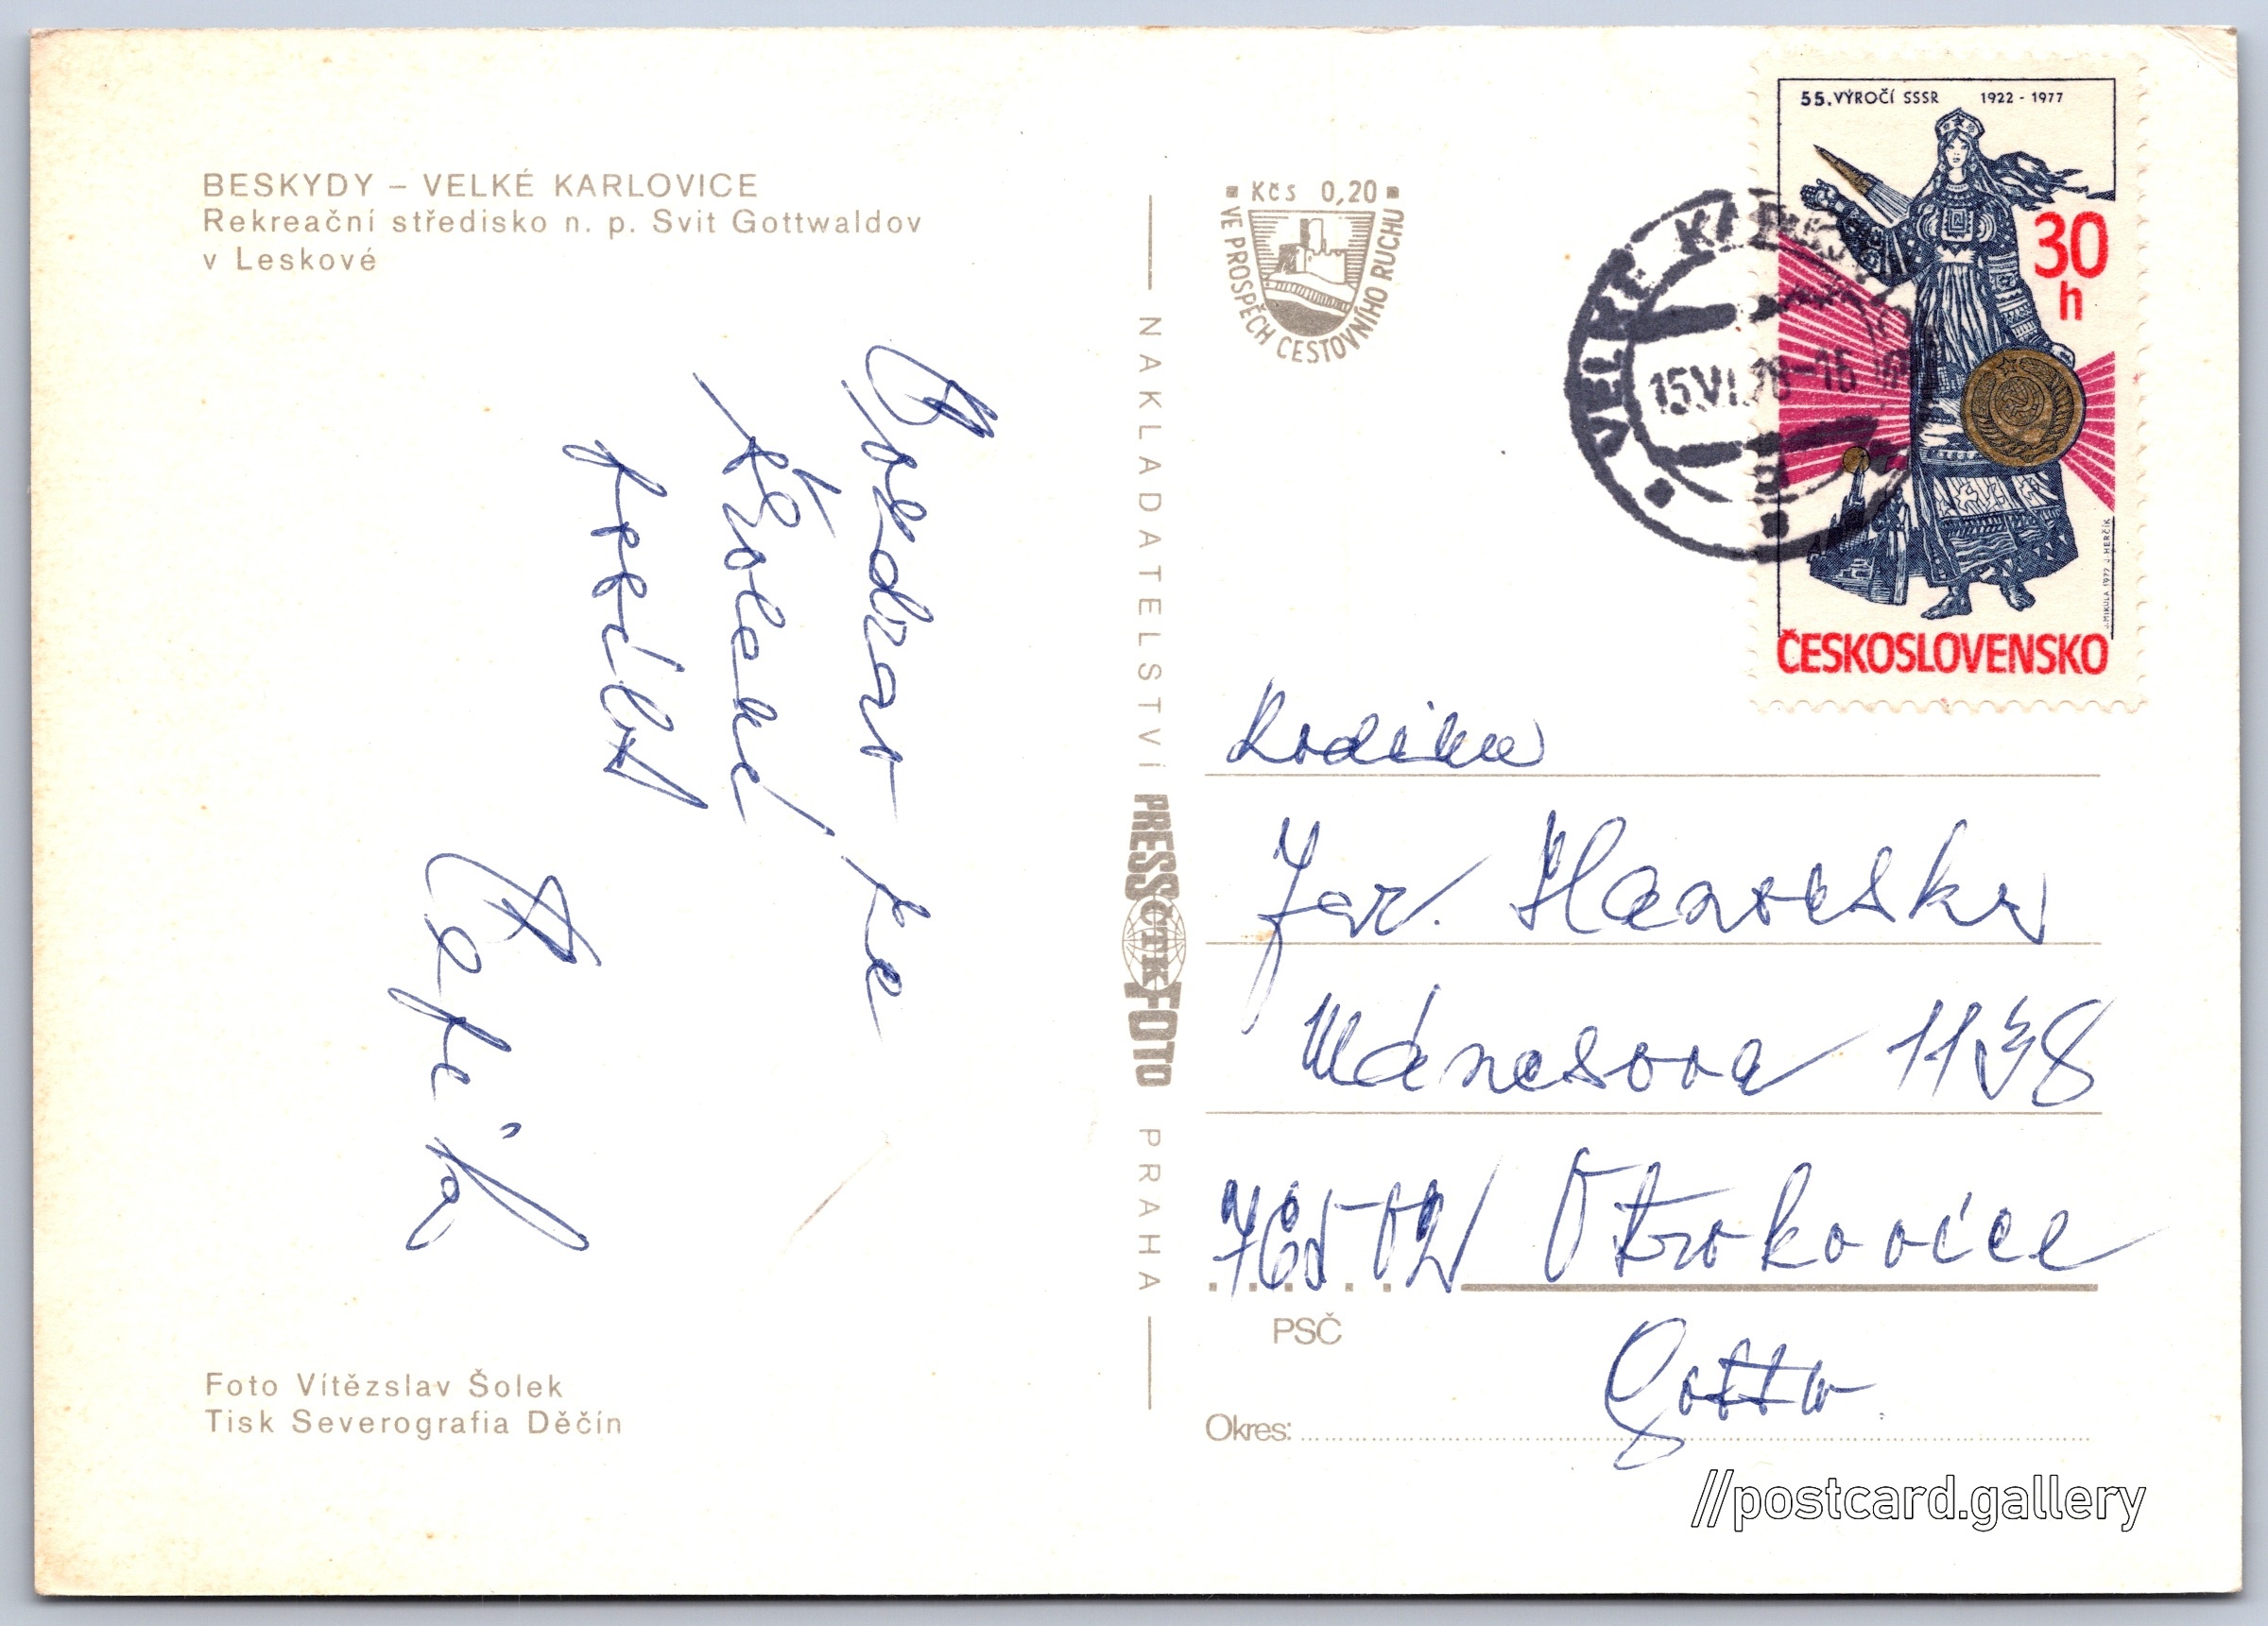 BESKYDY – VELKÉ KARLOVICE
Rekreační středisko n. p. Svit Gottwaldov
v Leskové
Pozdrav ze
školení
posílá
Čapák
Foto Vítězslav Šolek
Tisk Severografia Děčín
NAKLADATELSTVÍ PRESSFOTO PRAHA
ČTK
Kčs 0,20
VE PROSPĚCH CESTOVNÍHO RUCHU
VELKÉ KARLOVICE
15.VI.78-16
55. VÝROČÍ SSSR 1922 - 1977
30
h
J. MIKULA 1977 J. HERČÍK
ČESKOSLOVENSKO
Rodina
Jar. Hanovský
Mánesova
765 02 Otrokovice
PSČ
Okres:
//postcard.gallery